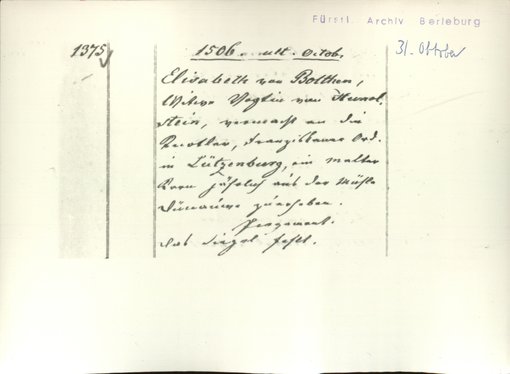 Fürstl. Archiv Berleburg
1375
1506. ult. Octob.
31. Oktober
Elisabeth von Bolchen,
Witwe Vogtin von Hunol-
stein, vermacht an die
Kloster, Franziskaner Ord.
in Lützenburg, ein malter
Korn jährlich aus der Mühle
zu erheben.
Pergament.
Das Siegel fehlt.